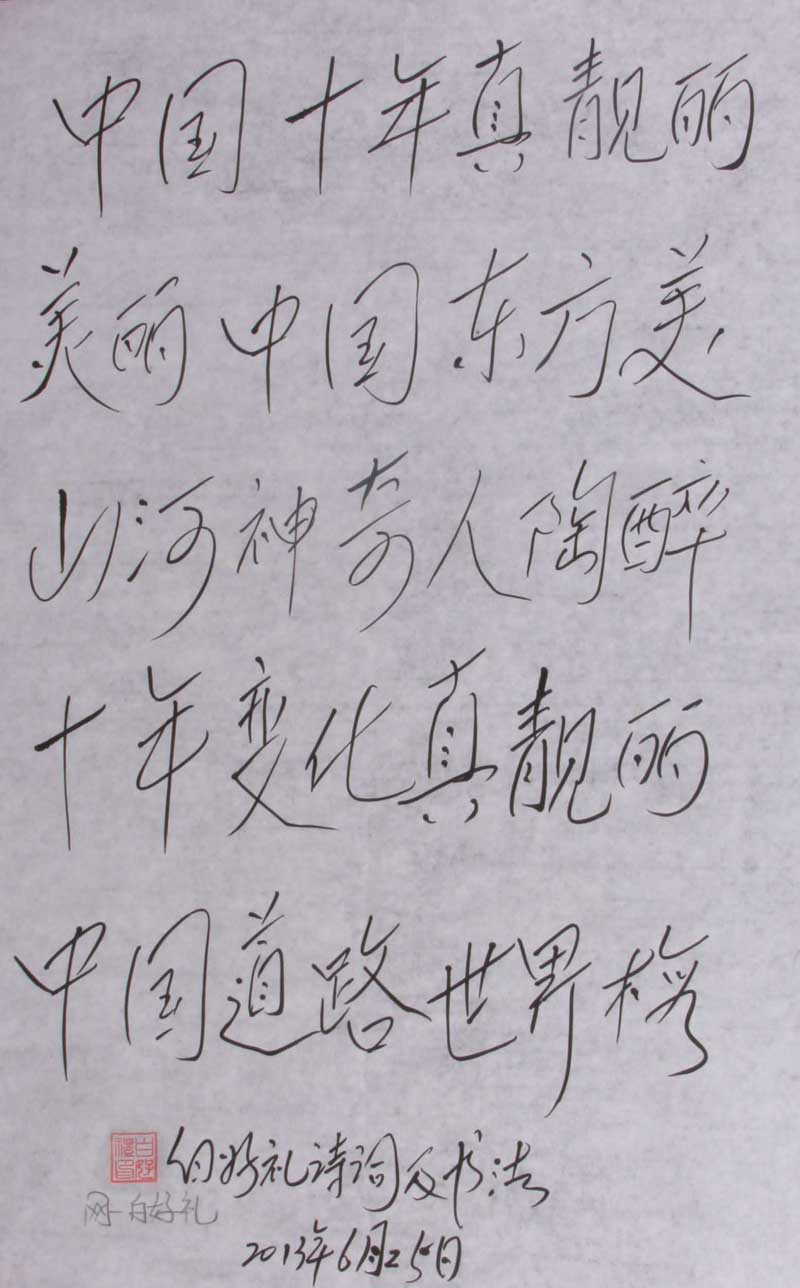 中国十年真靓丽
美丽中国东方美
山河神奇人陶醉
十年变化真靓丽
中国道路世界
白好礼诗词及书法
网-白好礼
2013年6月25日